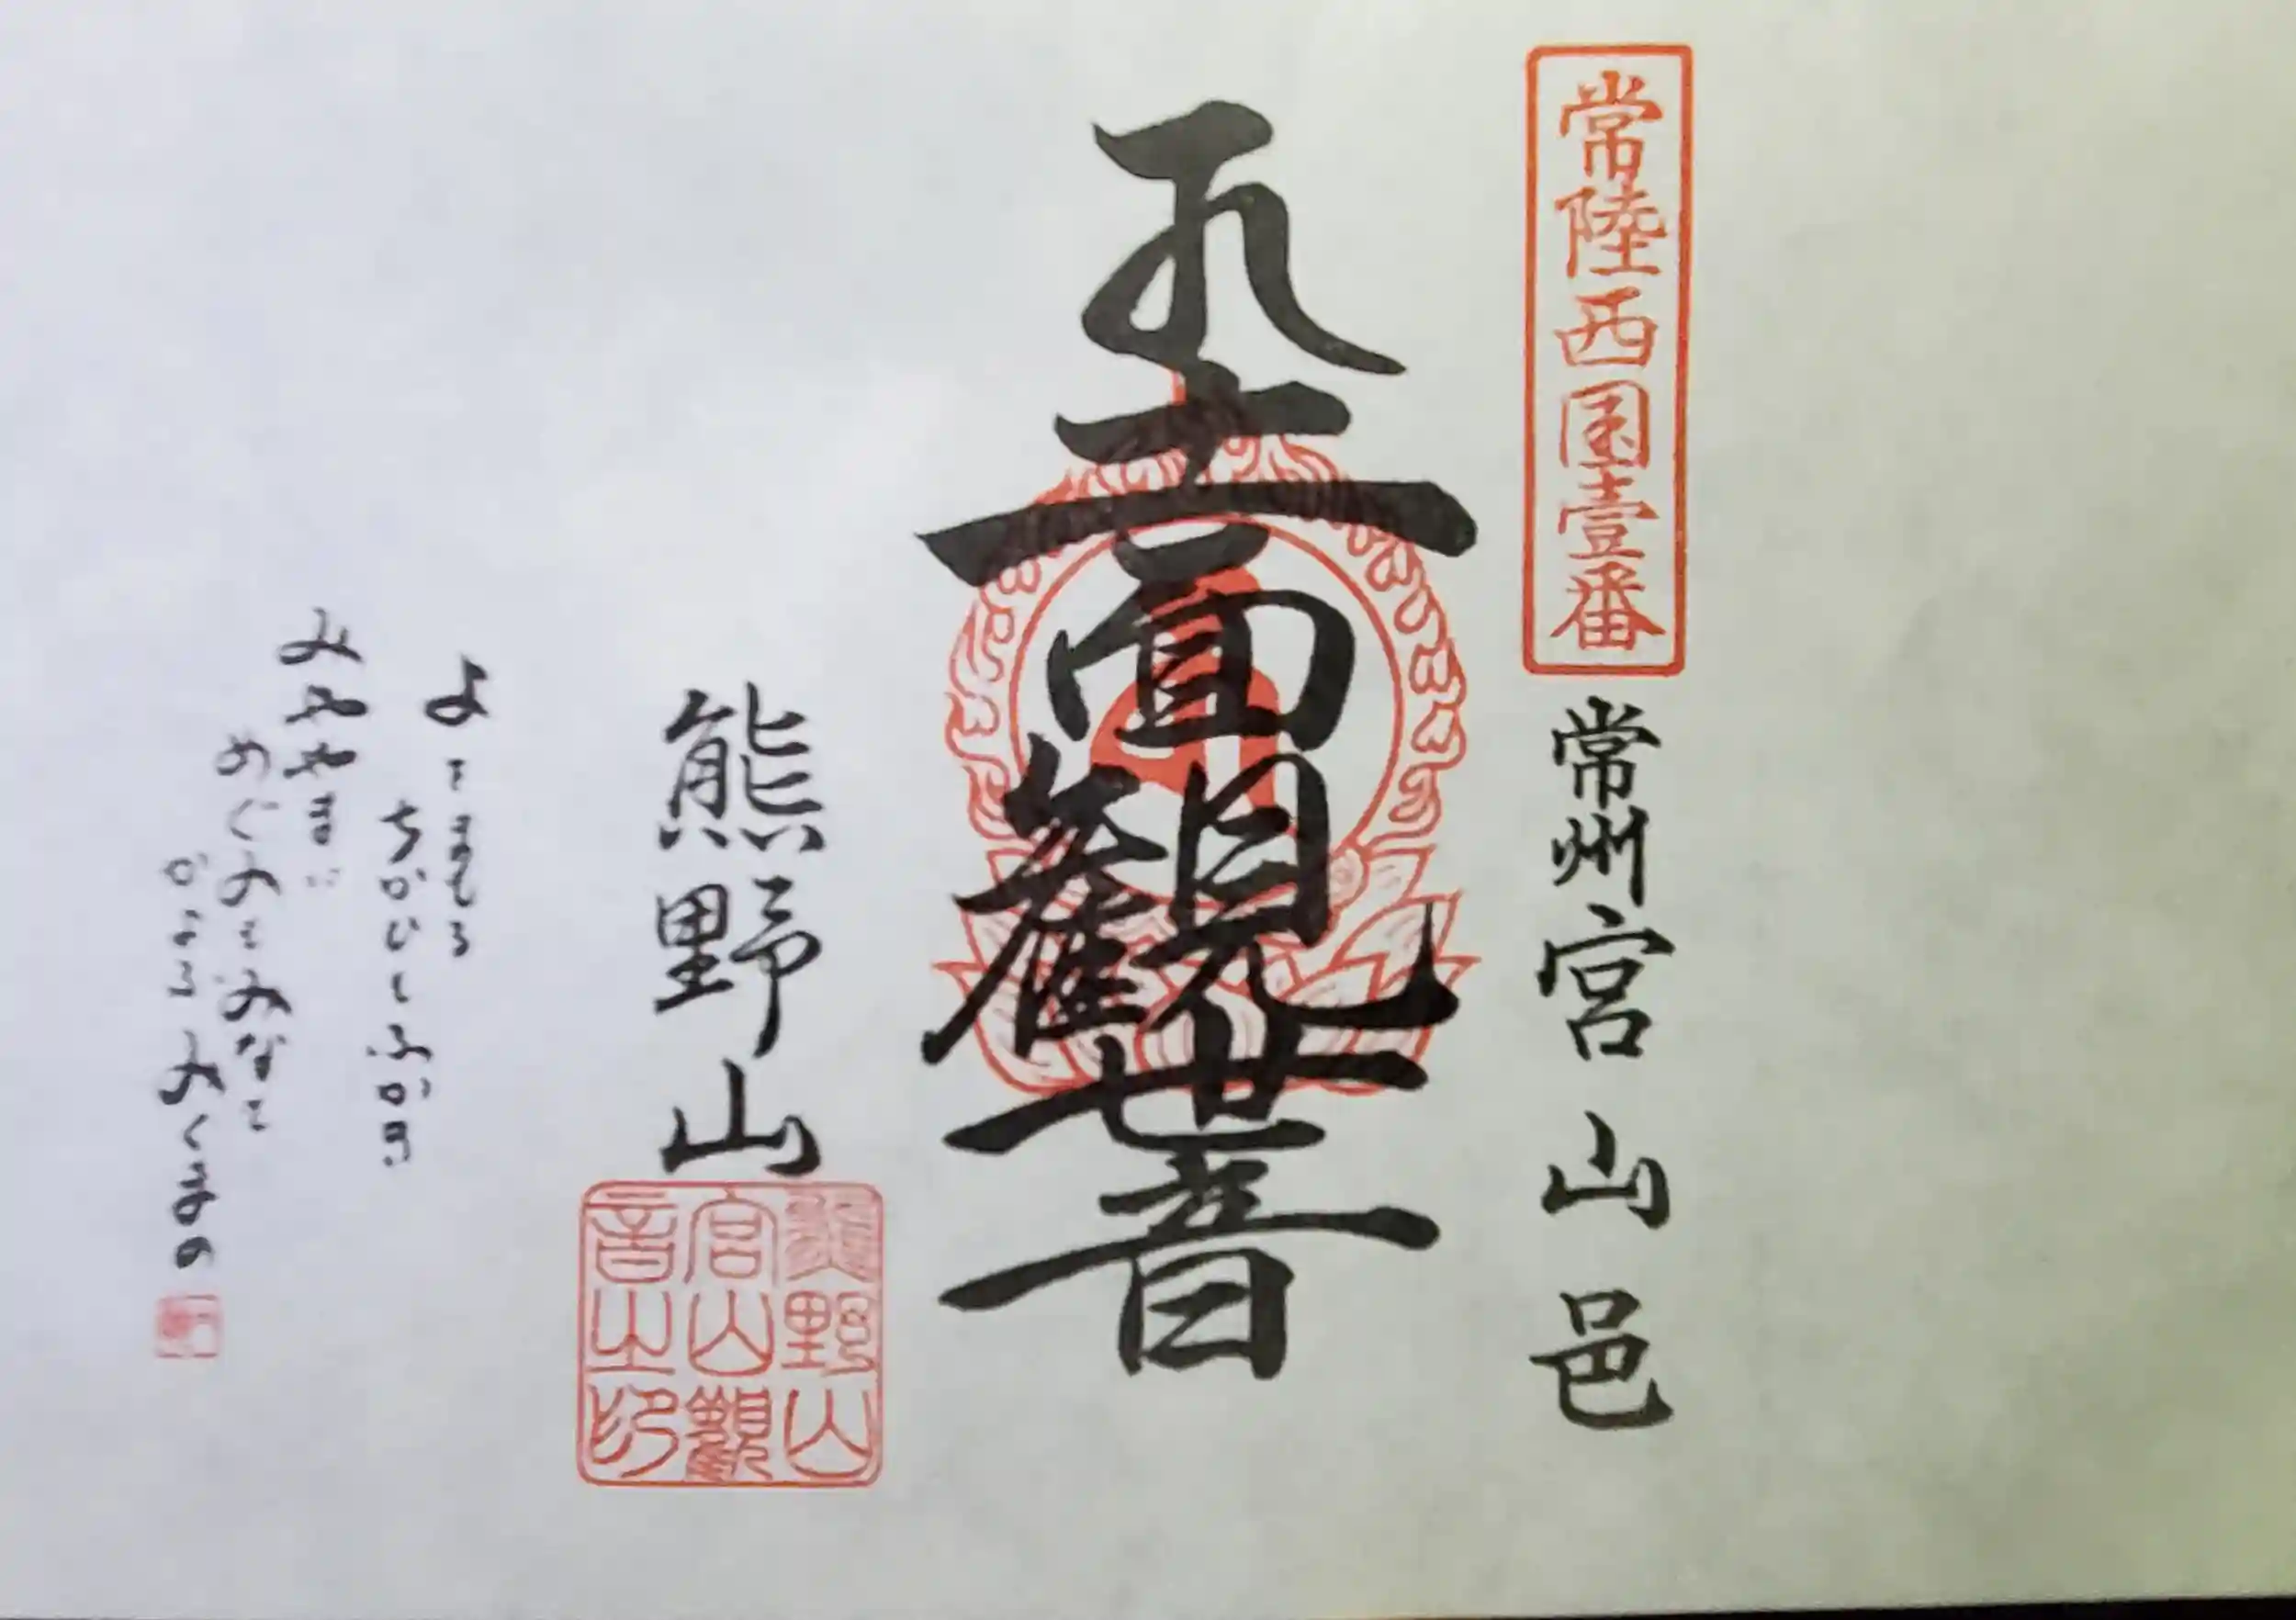 常陸西国壹番
常州宮山邑
十一面観世音
熊野山
熊野山
宮山觀
音之印
よをまもる
ちかひしふかき
みややまに
めぐみをみなに
みくまの